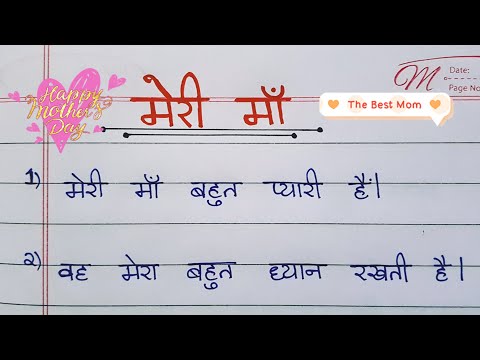 Happy
Mother's
Day
मेरी माँ
M
Date:
Page No
The Best Mom
1) मेरी माँ बहुत प्यारी हैं।
२) वह मेरा बहुत ध्यान रखती है।